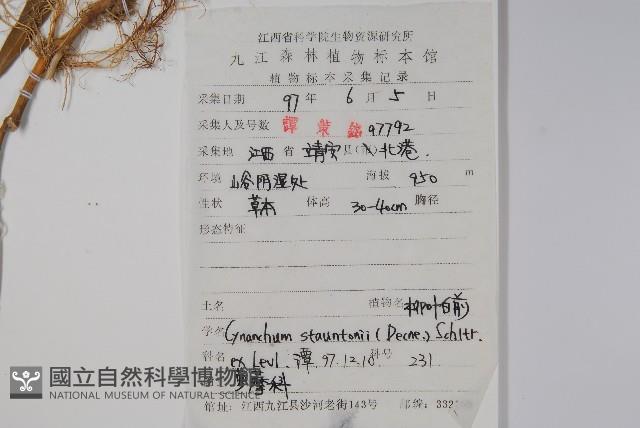 江西省科学院生物资源研究所
九江森林植物标本馆
植物标本采集记录
采集日期 97 年 6 月 5 日
采集人及号数 譚 策 銘 97792
采集地 江西 省 靖安 县(市) 北港.
环境 山谷阴湿处 海拔 950 m
性状 草本 体高 30-40cm 胸径
形态特征
土名 植物名 柳叶白前
学名 Cynanchum stauntonii (Decne.) Schltr.
科名 ex Levl. 譚 97.12.18 科号 231
萝摩科
國立自然科學博物館
NATIONAL MUSEUM OF NATURAL SCIENCE
馆址:江西九江县沙河老街143号 邮编:332